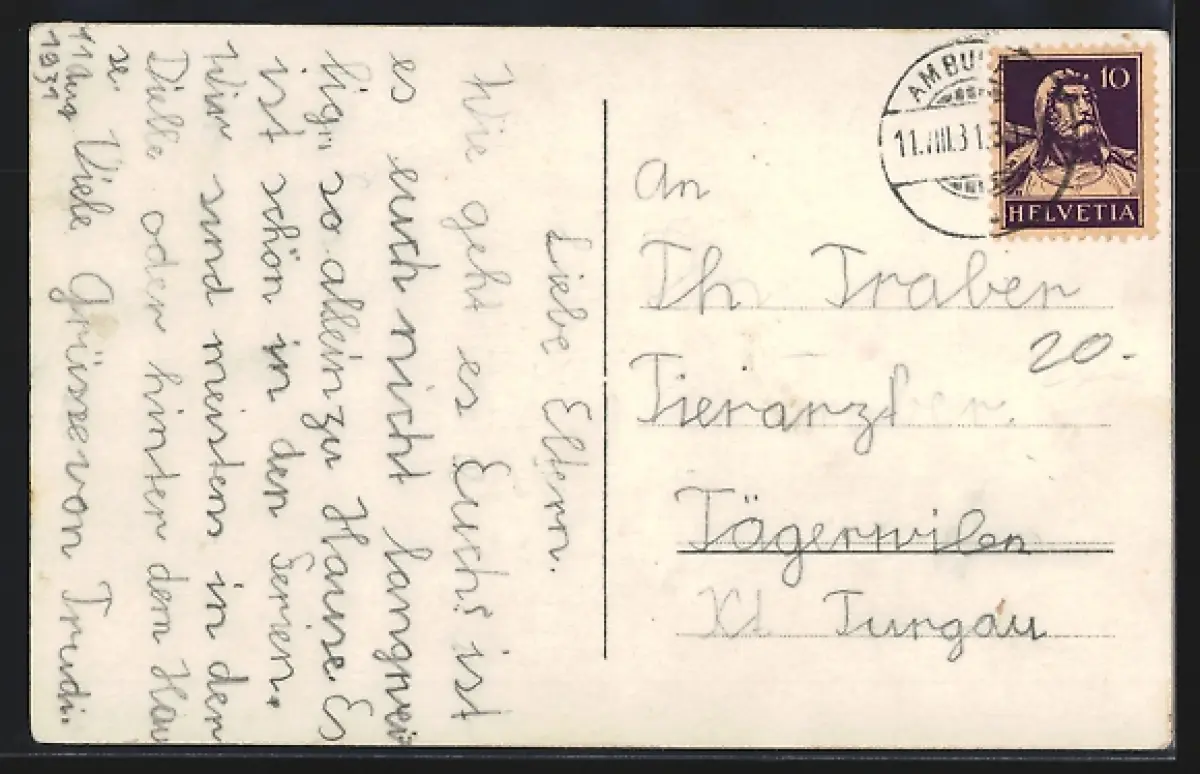 Liebe Eltern.
Wie geht es Euch? ist
es euch nicht langwei
lig,, so allein zu Hause. Es
ist schön in den Ferien.
Wir sind meistens in der
Diele oder hinter dem Hau
se.
Viele Grüsse von Trudi.
11 Aug
1931
AMBU
11.VIII.31.
10
HELVETIA
An
Th. Traber
20.-
Tierarzt
Tägerwilen
Kt Turgau